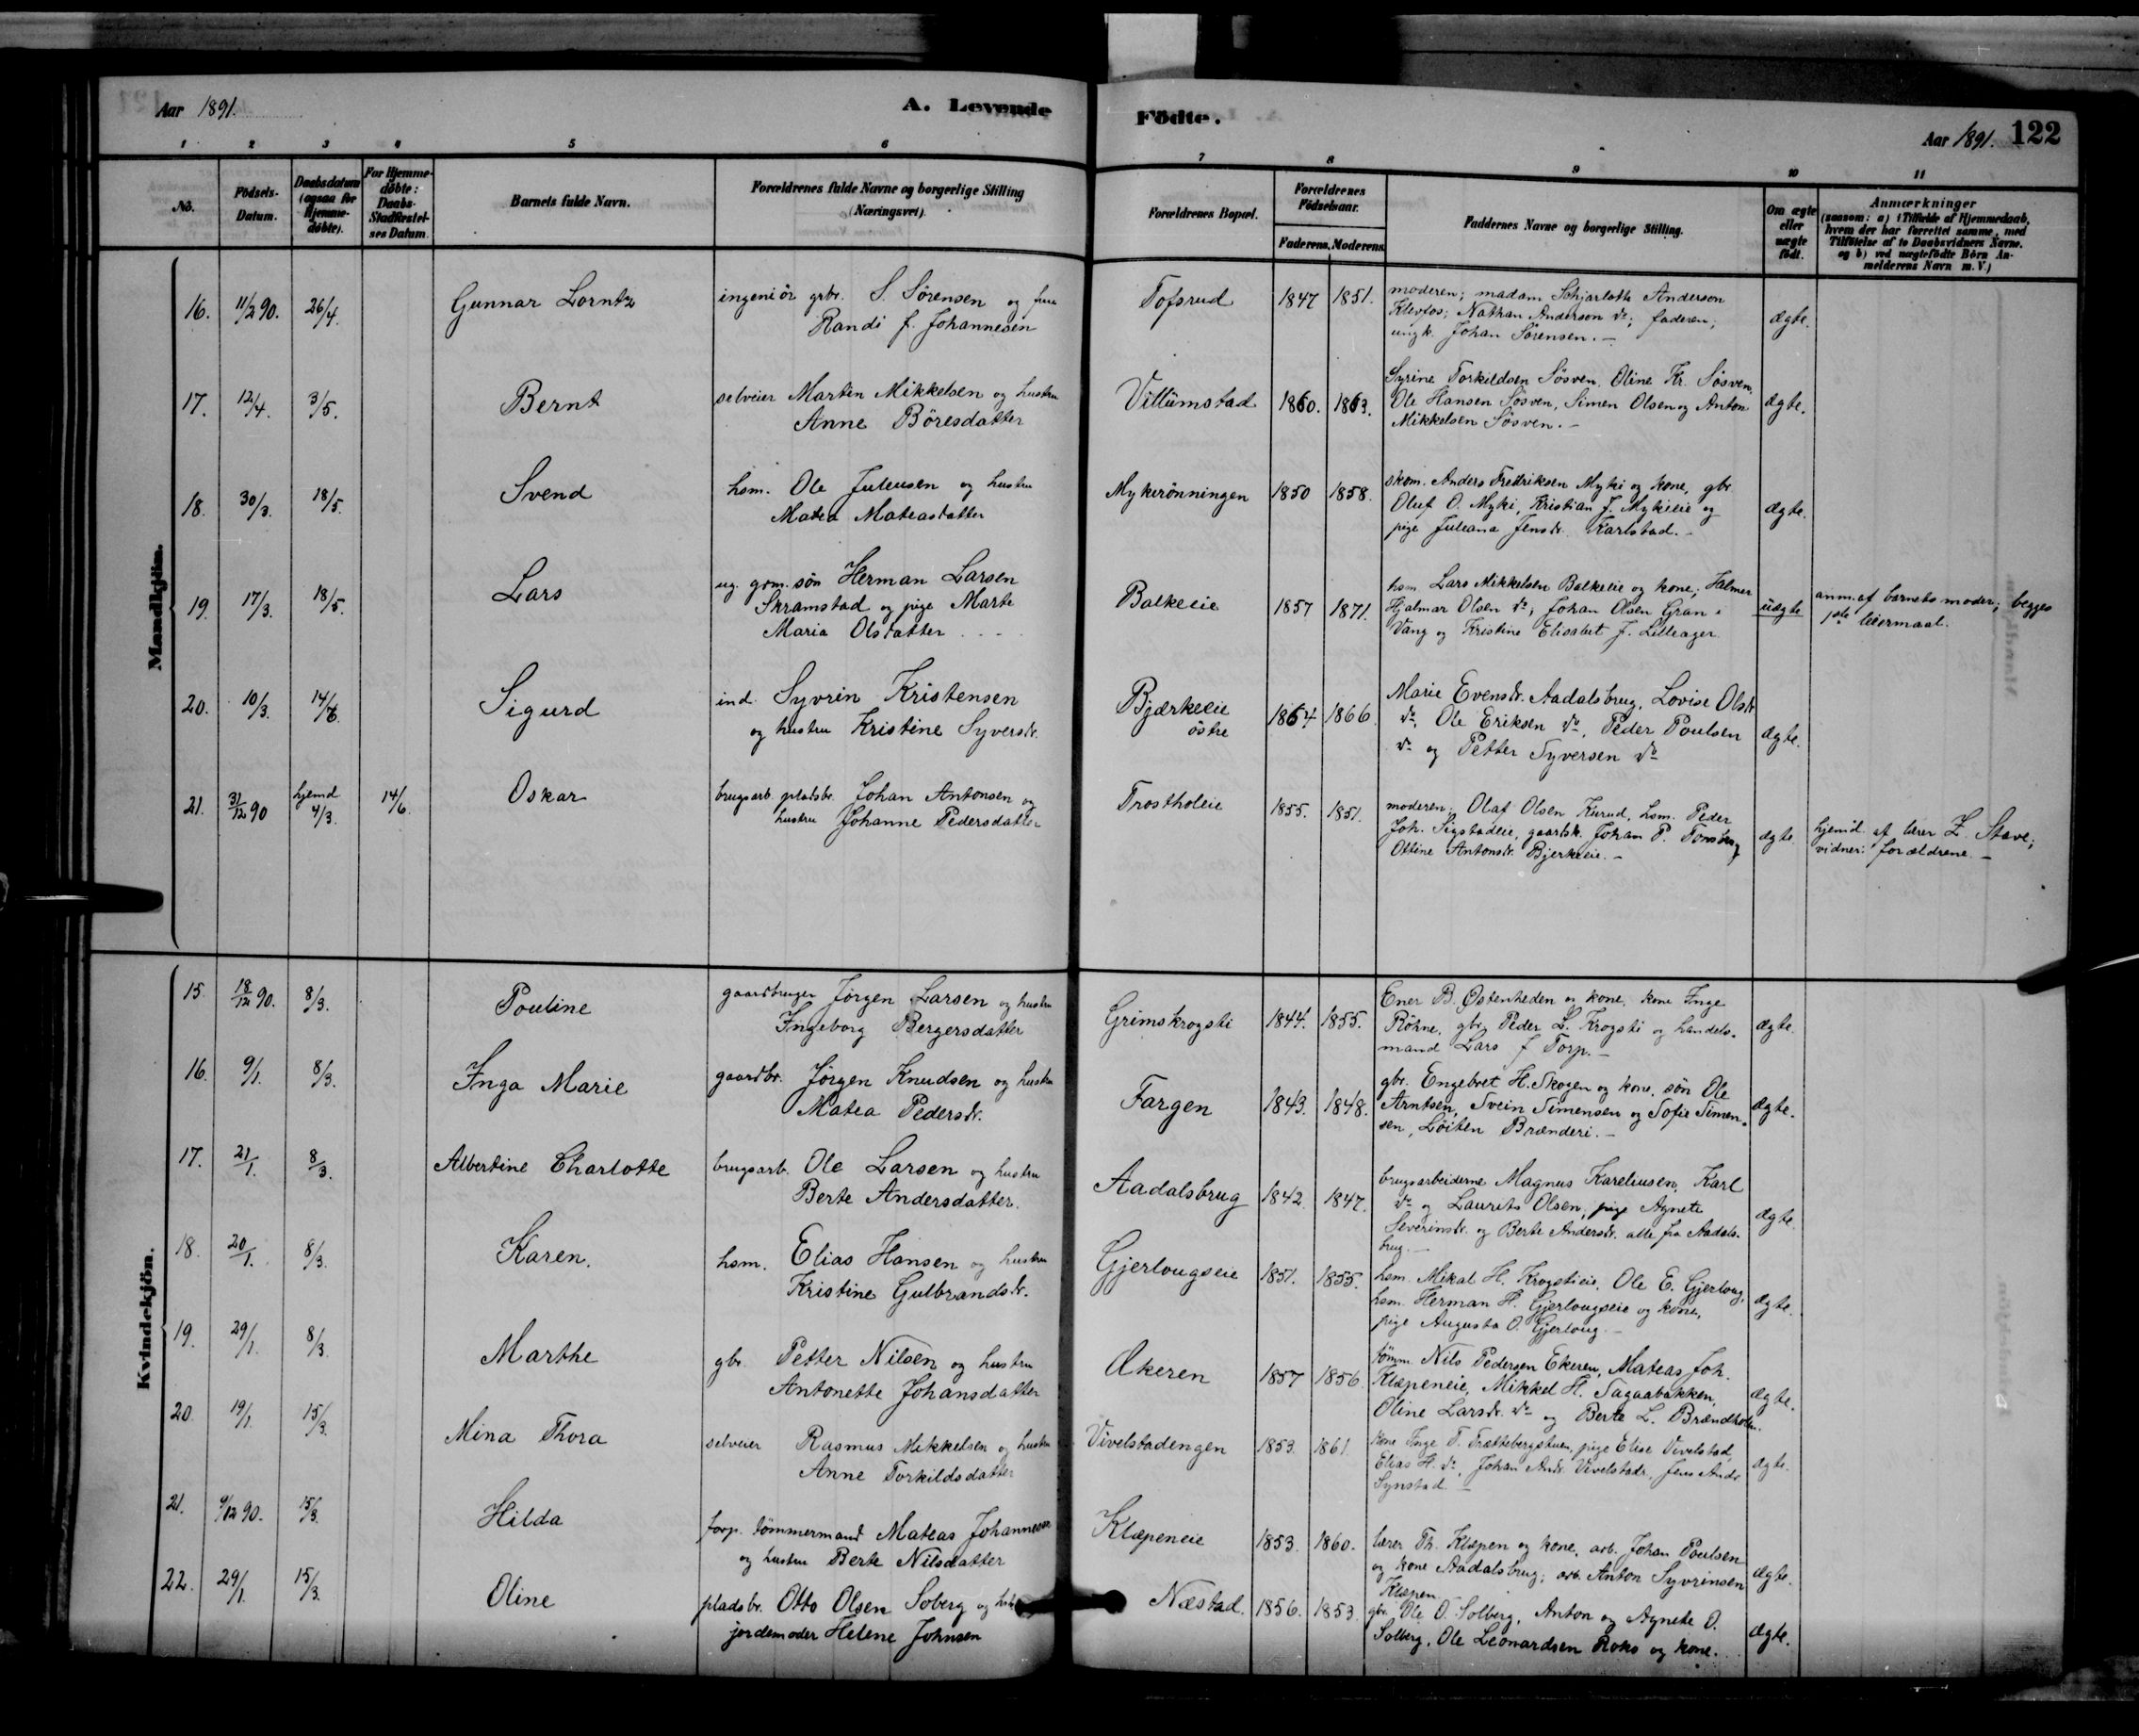 Aar 1891.
A. Levende
Födte.
Aar 1891. 122
1 2 3 4 5 6 7 8 9 10 11
No.
Födsels-
Datum.
Daabsdatum
(ogsaa for
Hjemme-
döbte).
For Hjemme-
döbte:
Daabs-
Stadfæstel-
ses Datum.
Barnets fulde Navn.
Forældrenes fulde Navne og borgerlige Stilling
(Næringsvei)
Forældrenes Bopæl.
Forældrenes
Födselsaar.
Faderens. Moderens.
Faddernes Navne og borgerlige Stilling.
Om ægte
eller
uægte
födt.
Anmærkninger
(saasom: a) i Tilfælde af Hjemmedaab,
hvem der har forrettet samme, med
Tilföielse af to Daabsvidners Navne.
og b) ved uægtefödte Börn An-
melderens Navn m. V.)
Mandkjön.
16. 11/2 90. 26/4. Gunnar Lorntz
ingeniör grbr. S. Sörensen og frue
Randi f. Johannesen
Tofsrud 1847 1851.
moderen; madam Schjarlotte Anderson
Klevfos; Nathan Anderson do; faderen;
ungk. Johan Sörensen.-
ægte.
17. 12/4. 3/5. Bernt
selveier Martin Mikkelsen og hustru
Anne Böresdatter
Villumstad 1860. 1863.
Syrine Torkildsen Sösven, Oline Kr. Sösven,
Ole Hansen Sösven, Simen Olsen og Anton
Mikkelsen Sösven.-
ægte.
18. 30/3. 18/5. Svend
hsm. Ole Juleusen og hustru
Matea Mateasdatter
Mykerönningen 1850 1858.
skom. Anders Fredriksen Myki og kone, gbr.
Oluf O. Myki, Kristian J. Mykieie og
pige Juleana Jensdr. Karlstad.-
ægte.
19. 17/3. 18/5. Lars
ug. grm. sön Herman Larsen
Skramstad og pige Marte
Maria Olsdatter
Balkeeie 1857 1871.
hsm Lars Mikkelsen Balkeeie og kone; Halmer
Hjalmar Olsen do; Johan Olsen Gran i
Vang og Kristine Elisabet J. Lilleager.
uægte
anm. af barnets moder; begges
1ste leiermaal.
20. 10/3. 14/6. Sigurd
ind. Syvrin Kristensen
og hustru Kristine Syversdr.
Bjærkeeie
östre
1864 1866.
Marie Evensdr. Aadalsbrug, Lovise Olsdr
do, Ole Eriksen do, Peder Poulsen
do og Petter Syversen do
ægte.
21. 31/12 90 hjemd 4/3. 14/6. Oskar
brugsarb. pladsbr. Johan Antonsen og
hustru Johanne Pedersdatter
Trostholeie 1855. 1851.
moderen; Olaf Olsen Kurud, hsm. Peder
Joh. Sigstadeie, gaardsk. Johan P.
Ottine Antonsdr. Bjerkeeie.-
ægte.
hjemd. af lærer Z. Stave;
vidner: forældrene.-
Kvindekjön.
15. 18/12 90. 8/3. Pouline
gaardbruger Jörgen Larsen og hustru
Ingeborg Bergersdatter
Grimskrogsti 1844. 1855.
Ener B. Østenheden og kone, kone Inge
Röhne, gbr. Peder L. Krogsti og handels-
mand Lars J Torp.-
ægte.
16. 9/1. 8/3. Inga Marie
gaardbr. Jörgen Knudsen og hustru
Matea Pedersdr.
Fargen 1843. 1848.
gbr. Engebret H. Skogen og kone, sön Ole
Arntsen, Svein Simensen og Sofie Simen-
sen, Löiten Brænderi.-
ægte.
17. 21/1. 8/3. Albertine Charlotte
brugsarb. Ole Larsen og hustru
Berte Andersdatter.
Aadalsbrug 1842. 1847.
brugsarbeiderne Magnus Kareliusen, Karl
do og Laurits Olsen, pige Agnete
Severinsdr. og Berte Andersdr. alle fra Aadals-
brug.-
ægte.
18. 20/1. 8/3. Karen.
hsm. Elias Hansen og hustru
Kristine Gulbrandsdr.
Gjerlougseie 1851. 1855.
hsm. Mikal H. Krogstieie, Ole E. Gjerloug,
hsm. Herman H. Gjerlougseie og kone,
pige Augusta O. Gjerloug.-
ægte.
19. 29/1. 8/3. Marthe
gbr. Petter Nilsen og hustru
Antonette Johansdatter
Ækeren 1857 1856
tömm. Nils Pedersen Ekeren, Mateas Joh.
Klæpeneie, Mikkel H. Sagaabakken,
Oline Larsdr. do og Berte L. Brændholen.
ægte.
20. 19/1. 15/3. Mina Thora
selveier Rasmus Mikkelsen og hustru
Anne Torkildsdatter
Vivelstadengen 1853. 1861.
kone Inge T. Trættebergstuen, pige Elise Vivelstad,
Elias H. do, Johan Andr. Vivelstadr., Jens Andr.
Synstad.-
ægte.
21. 9/12 90. 15/3. Hilda
forp. tömmermand Mateas Johannesen
og hustru Berte Nilsdatter
Klæpeneie 1853. 1860.
lærer Th. Klæpen og kone, arb. Johan Poulsen
og kone Aadalsbrug; arb. Anton Syvrinsen
Klæpen
ægte.
22. 29/1. 15/3. Oline
pladsbr. Otto Olsen Soberg og
jordemoder Helene Johnsen
Næstad. 1856. 1853.
gbr. Ole O. Solberg, Anton og Agnete O.
Solberg, Ole Leonardsen Roko og kone.
ægte.